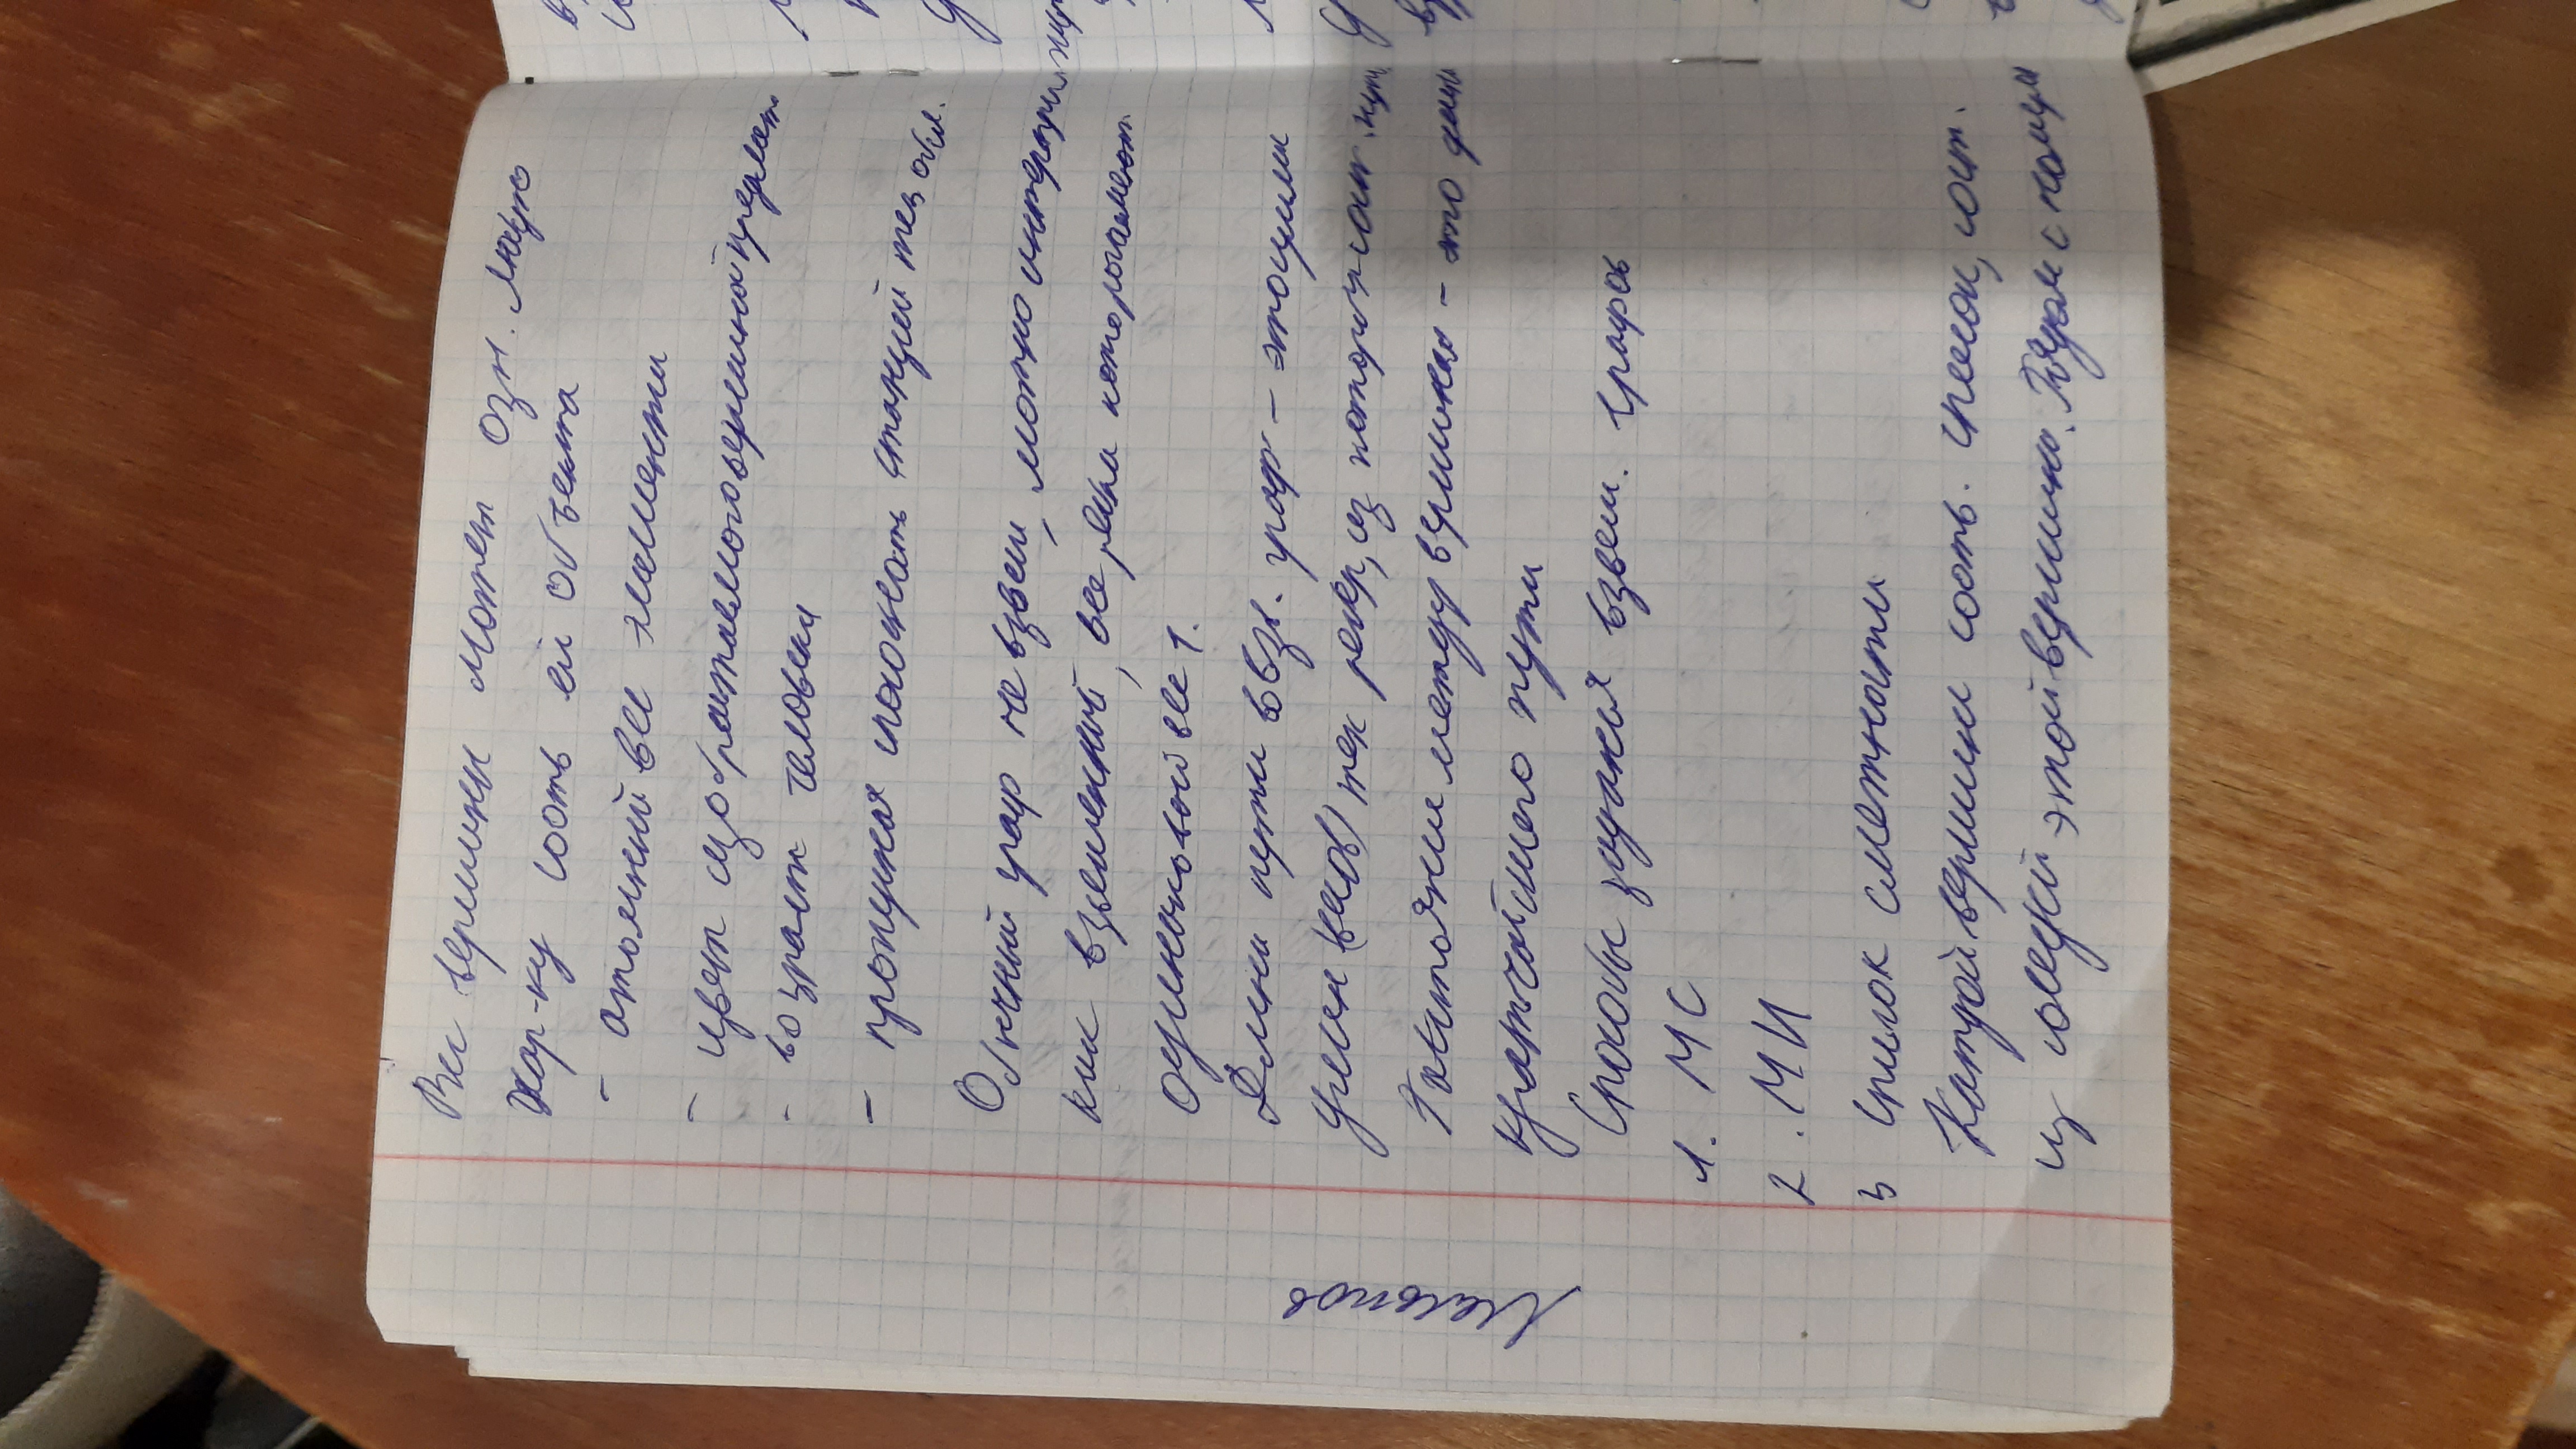 Вес вершины может озн. любую
хар-ку соотв ей объекта
- атомный вес элемента
- цвет изображаемого вершиной предмета
- возраст человека
- пропускная способность станций тех обсл.
Обычный граф не взвеш, можно интерпрети
как взвешенный, все ребра которого имеют
одинаковый вес 1.
Длина пути во взв. граф - это сумма
длин (весов) тех ребер, из которых сост. пути
Расстояние между вершинами - это длина
кратчайшего пути
Способы задания взвеш. графов
1. МС
2. МИ
3 список смежности
Каждой вершине соотв. список, сост.
из соседей этой вершины. Рядом с номера
Мельков